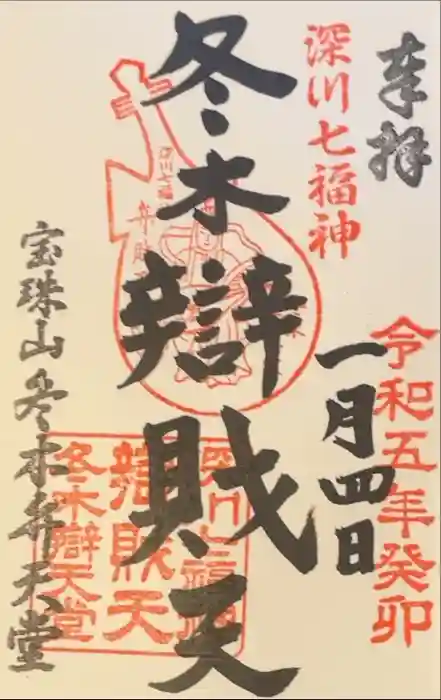 奉拝
深川七福神
令和五年癸卯
一月四日
冬木辯財天
深川七福神
弁財天
宝珠山冬木弁天堂
深川七福神
辯財天
冬木辯天堂